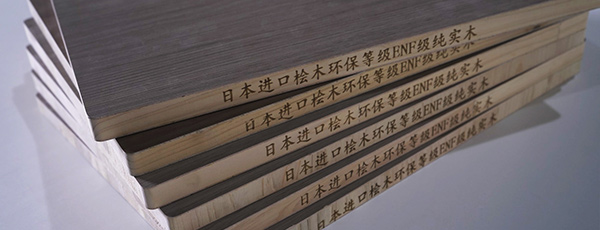 日本进口桧木环保等级ENF级纯实木
日本进口桧木环保等级ENF级纯实木
日本进口桧木环保等级ENF级纯实木
日本进口桧木环保等级ENF级纯实木
日本进口桧木环保等级ENF级纯实木
日本进口桧木环保等级ENF级纯实木